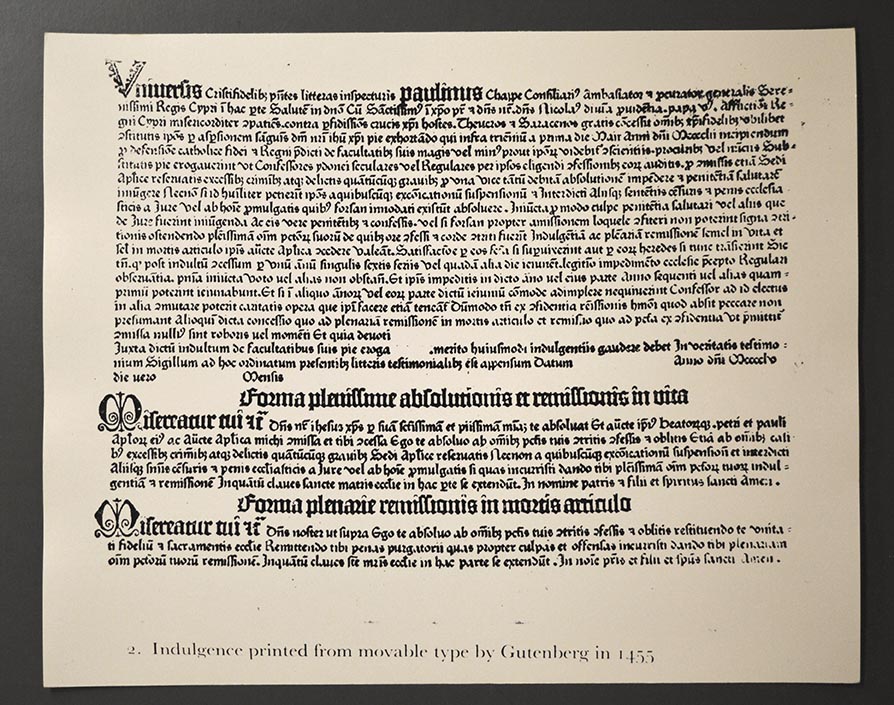 Vniuersis Cristifidelibꝫ p̄ntes litteras inspecturis Paulinus Chappe Consiliariꝰ Ambasiator ⁊ ꝓcurator generalis Sere⸗
nissimi Regis Cypri ī hac ꝑte Salutē in dn̄o Cū Sāctissimꝰ ī xp̄o pr̄ ⁊ dn̄s nr̄. dn̄s Nicolaꝰ diuīa ꝓuidētia. papa vꝰ. Afflictiōi Re⸗
gni Cypri misericorditer ꝯpatiēs. contra ꝑfidissiōs crucis xp̄i hostes. Theucros ⁊ Saracenos gratis cōcessit om̄ibꝫ xp̄ifidelibꝫ vbilibet
ꝯstitutis ip̄os ꝑ aspsionem sāguīs dn̄i nr̄i ihū xp̄i pie exhortādo qui infra trieniū a prima die Maii Anni dn̄i Mcccclii incipiendum
ꝓ defensiōe catholice fidei ⁊ Regni p̄dicti de facultatibꝫ suis magis vel minꝰ prout ip̄oꝝ videbit̄ ꝯscientiis. procꝛibꝫ vel nūciis Sub⸗
stitutis pie erogauerint vt Confessores ydonei seculares vel Regulares per ipsos eligendi ꝯfessionibꝫ eoꝝ auditis. ꝓ ꝯmissis etiā Sedi
Aplice reseruatis excessibꝫ criminibꝫ atqꝫ delictis quātūcūqꝫ grauibꝫ ꝓ vna vice tātū debitā absolutionē impēdere ⁊ penitētiā salutarē
iniūgere Necnō si id hūiliter petierīt ip̄os a quibuscūqꝫ excōicationū suspensionū ⁊ Interdicti Aliisqꝫ sentētiis cēsuris ⁊ penis ecclesia
sticis a Jure vel ab hoīe ꝓmulgatis quibꝰ forsan innodati existūt absoluere. Iniūcta ꝓ modo culpe penitētia salutari vel aliis que
de Jure fuerint iniūgenda Ac eis vere penitētibꝫ ⁊ confessis. vel si forsan propter amissionem loquele ꝯfiteri non poterint signa ꝯtri⸗
tionis ostendendo pleissimā oīm pctōꝝ suoꝝ de quibꝫ ore ꝯfessi ⁊ corde ꝯtriti fuerīt Indulgētiā ac plēariā remissionē semel in vita et
sel in mortis articulo ip̄is aucte Aplica ꝯcedere valeāt. Satisfactiōe ꝑ eos fc̄a si supuixerint aut ꝑ eoꝝ heredes si tunc trāsierint Sic
tn̄. qꝫ post indultū ꝯcessum ꝑ vnū ānū singulis sextis feriis vel quadā alia die ieiunēt. legitīo impedimēto ecclesie p̄cepto Regulari
obseruātia. pn̄ia iniūcta voto vel alias non obstan̄. Et ip̄is impeditis in dicto āno vel eius parte Anno sequenti vel alias quam⸗
primū poterint ieiunabunt. Et si ī aliquo ānoꝝ vel eoꝝ parte dictū ieiuniū cōmode adimplere nequiuerint Confessor ad id electus
in alia ꝯmutare poterit caritatis opera que ip̄i facere etiā teneāt̄ Dūmodo tn̄ ex ꝯfidentia remissionis hmōi quod absit peccare non
presumant Alioqui dicta concessio quo ad plenariā remissionē in mortis articulo et remissio quo ad pctā ex ꝯfidentia vt p̄mittit̄
ꝯmissa nulliꝰ sint roboris vel momēti Et quia deuoti
Juxta dictū indultum de facultatibus suis pie eroga .merito huiusmodi indulgentiis gaudere debet In veritatis testimo⸗
nium Sigillum ad hoc ordinatum presentibꝫ litteris testimonialibꝫ est appensum Datum Anno dn̄i Mcccclv
die vero Mensis
Forma plenissime absolutionis et remissionis in vita
Misereatur tui ⁊c̄ Dn̄s nr̄ ihesus xp̄s ꝑ suā sctīssimā et piissimā mīaꝫ te absoluat Et aucte ip̄iꝰ Beatorꝫqꝫ. petri et pauli
Aplōꝝ eiꝰ ac Aucte Aplica michi ꝯmissa et tibi ꝯcessa Ego te absoluo ab om̄ibꝫ pctīs tuis ꝯtritis ꝯfessis ⁊ oblitis Etiā ab om̄ibꝫ casi⸗
bꝫ excessibꝫ crimībꝫ atqꝫ delictis quātūcūqꝫ grauibꝫ Sedi Aplice reseruatis Necnon a quibuscūqꝫ excōicationū suspensionū et interdicti
Aliisqꝫ sniīs cēsuris ⁊ penis eccliasticis a Jure vel ab hoīe ꝓmulgatis si quas incurristi dando tibi plēissimā oīm pctōꝝ tuoꝝ indul⸗
gentiā ⁊ remissionē Inquātū claues sancte matris ecclie in hac ꝑte se extendūt. In nomine patris ⁊ filii et spiritus sancti Amen.
Forma plenarie remissionis in mortis articulo
Misereatur tui ⁊c̄ Dn̄s noster ut supra Ego te absoluo ab om̄ibꝫ pctīs tuis ꝯtritis ꝯfessis ⁊ oblitis restituendo te vnita⸗
ti fideliū ⁊ sacramentis ecclie Remittendo tibi penas purgatorii quas propter culpas et offensas incurristi dando tibi plenariam
oīm pctōꝝ tuoꝝ remissionē. Inquātū claues scē mr̄is ecclie in hac parte se extendūt. In noīe pr̄is et filii et spūs sancti Amen.
2. Indulgence printed from movable type by Gutenberg in 1455